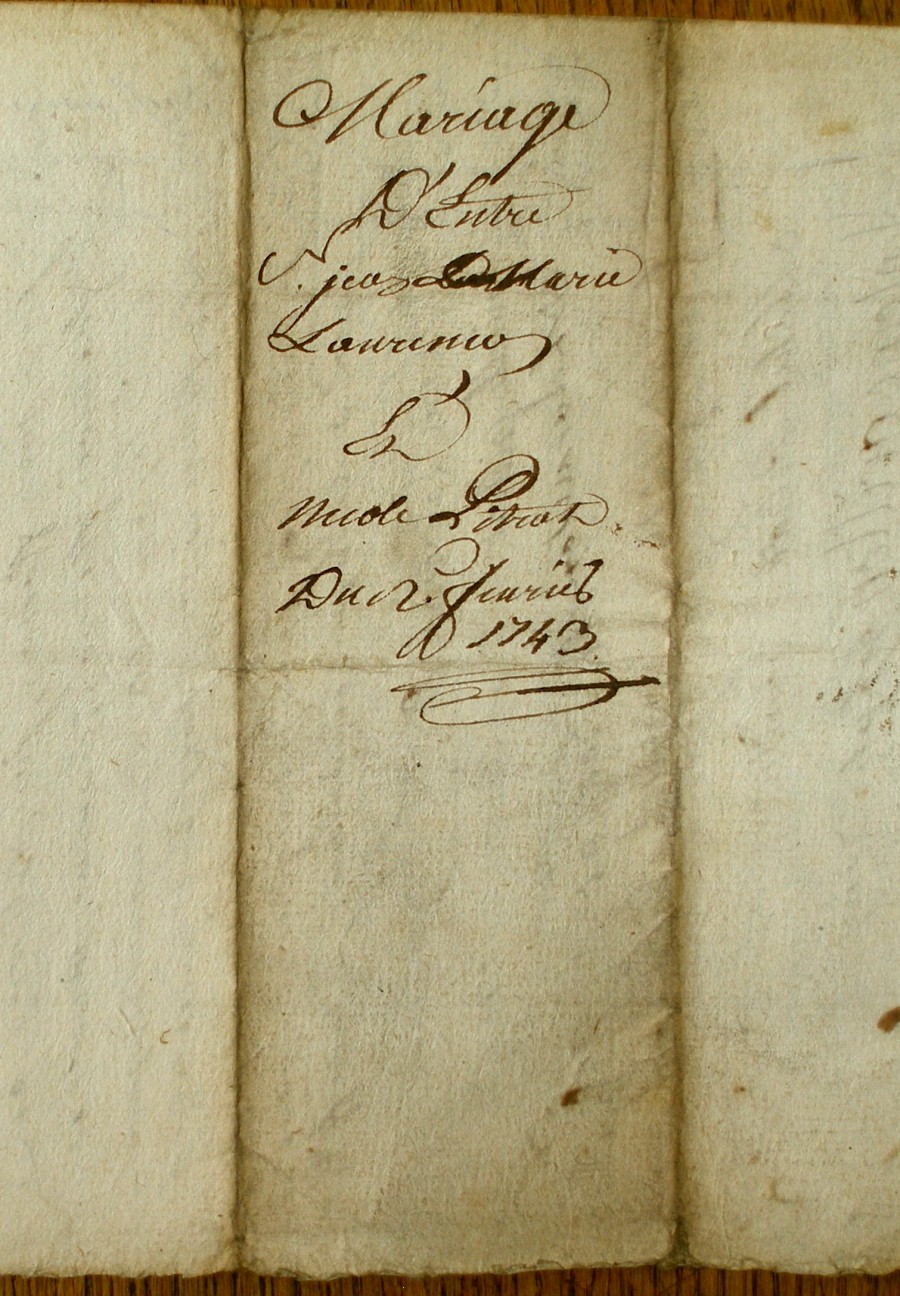 Mariage
D'Entre
S. jea Marie
Laurenco
Et
nicole Pitrat
Du 2. feurier
1743